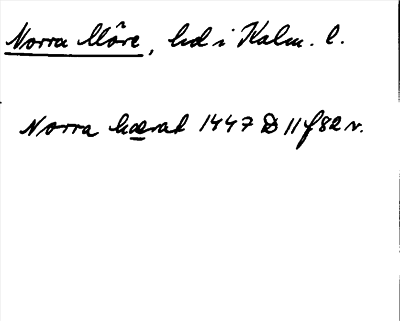 Norra Möre, hd i Kalm. l.
Norra hærat 1447 D 11 f 82 v.